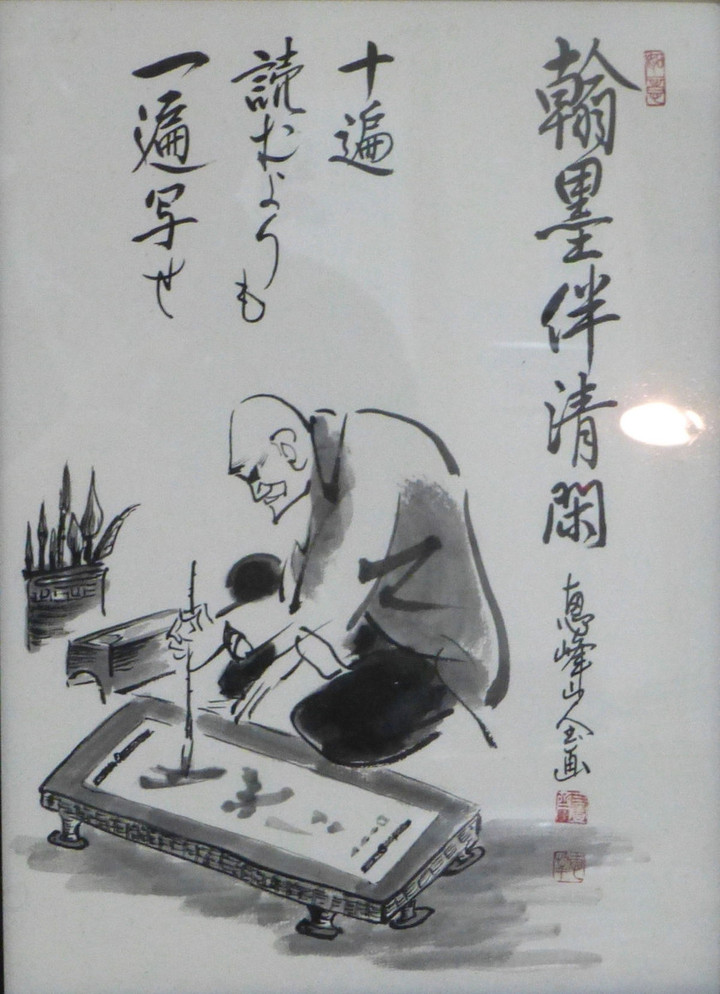 翰墨伴清閑
恵峰山人画
十遍
読むよりも
一遍写せ